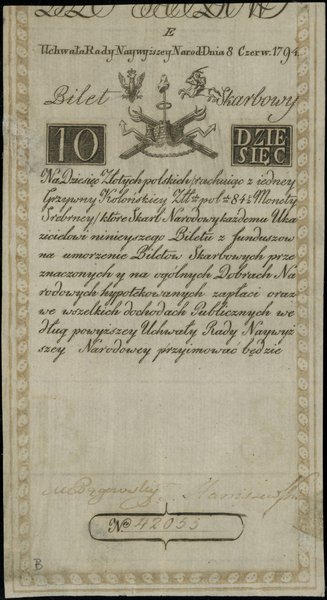 E
Uchwała Rady Naywyższey Narod: Dnia 8 Czerw. 1794.
Bilet Skarbowy
10 DZIE
SIĘĆ
Na Dziesięc Złotych polskich / rachuiąc z iedney
Grzywny Kolonskiey Złtch. pol.ch 84½ Monety
Srebrney / które Skarb Narodowy każdemu Uka
zicielowi ninieyszego Biletu z funduszow
na umorzenie Biletów Skarbowych prze
znaczonych y na ogolnych Dobrach Na
rodowych hypotekowanych zapłaci oraz
we wszelkich dochodach Publicznych we
dług powyższey Uchwały Rady Naywyż
szey Narodowey przyimować będzie
No 42055
B